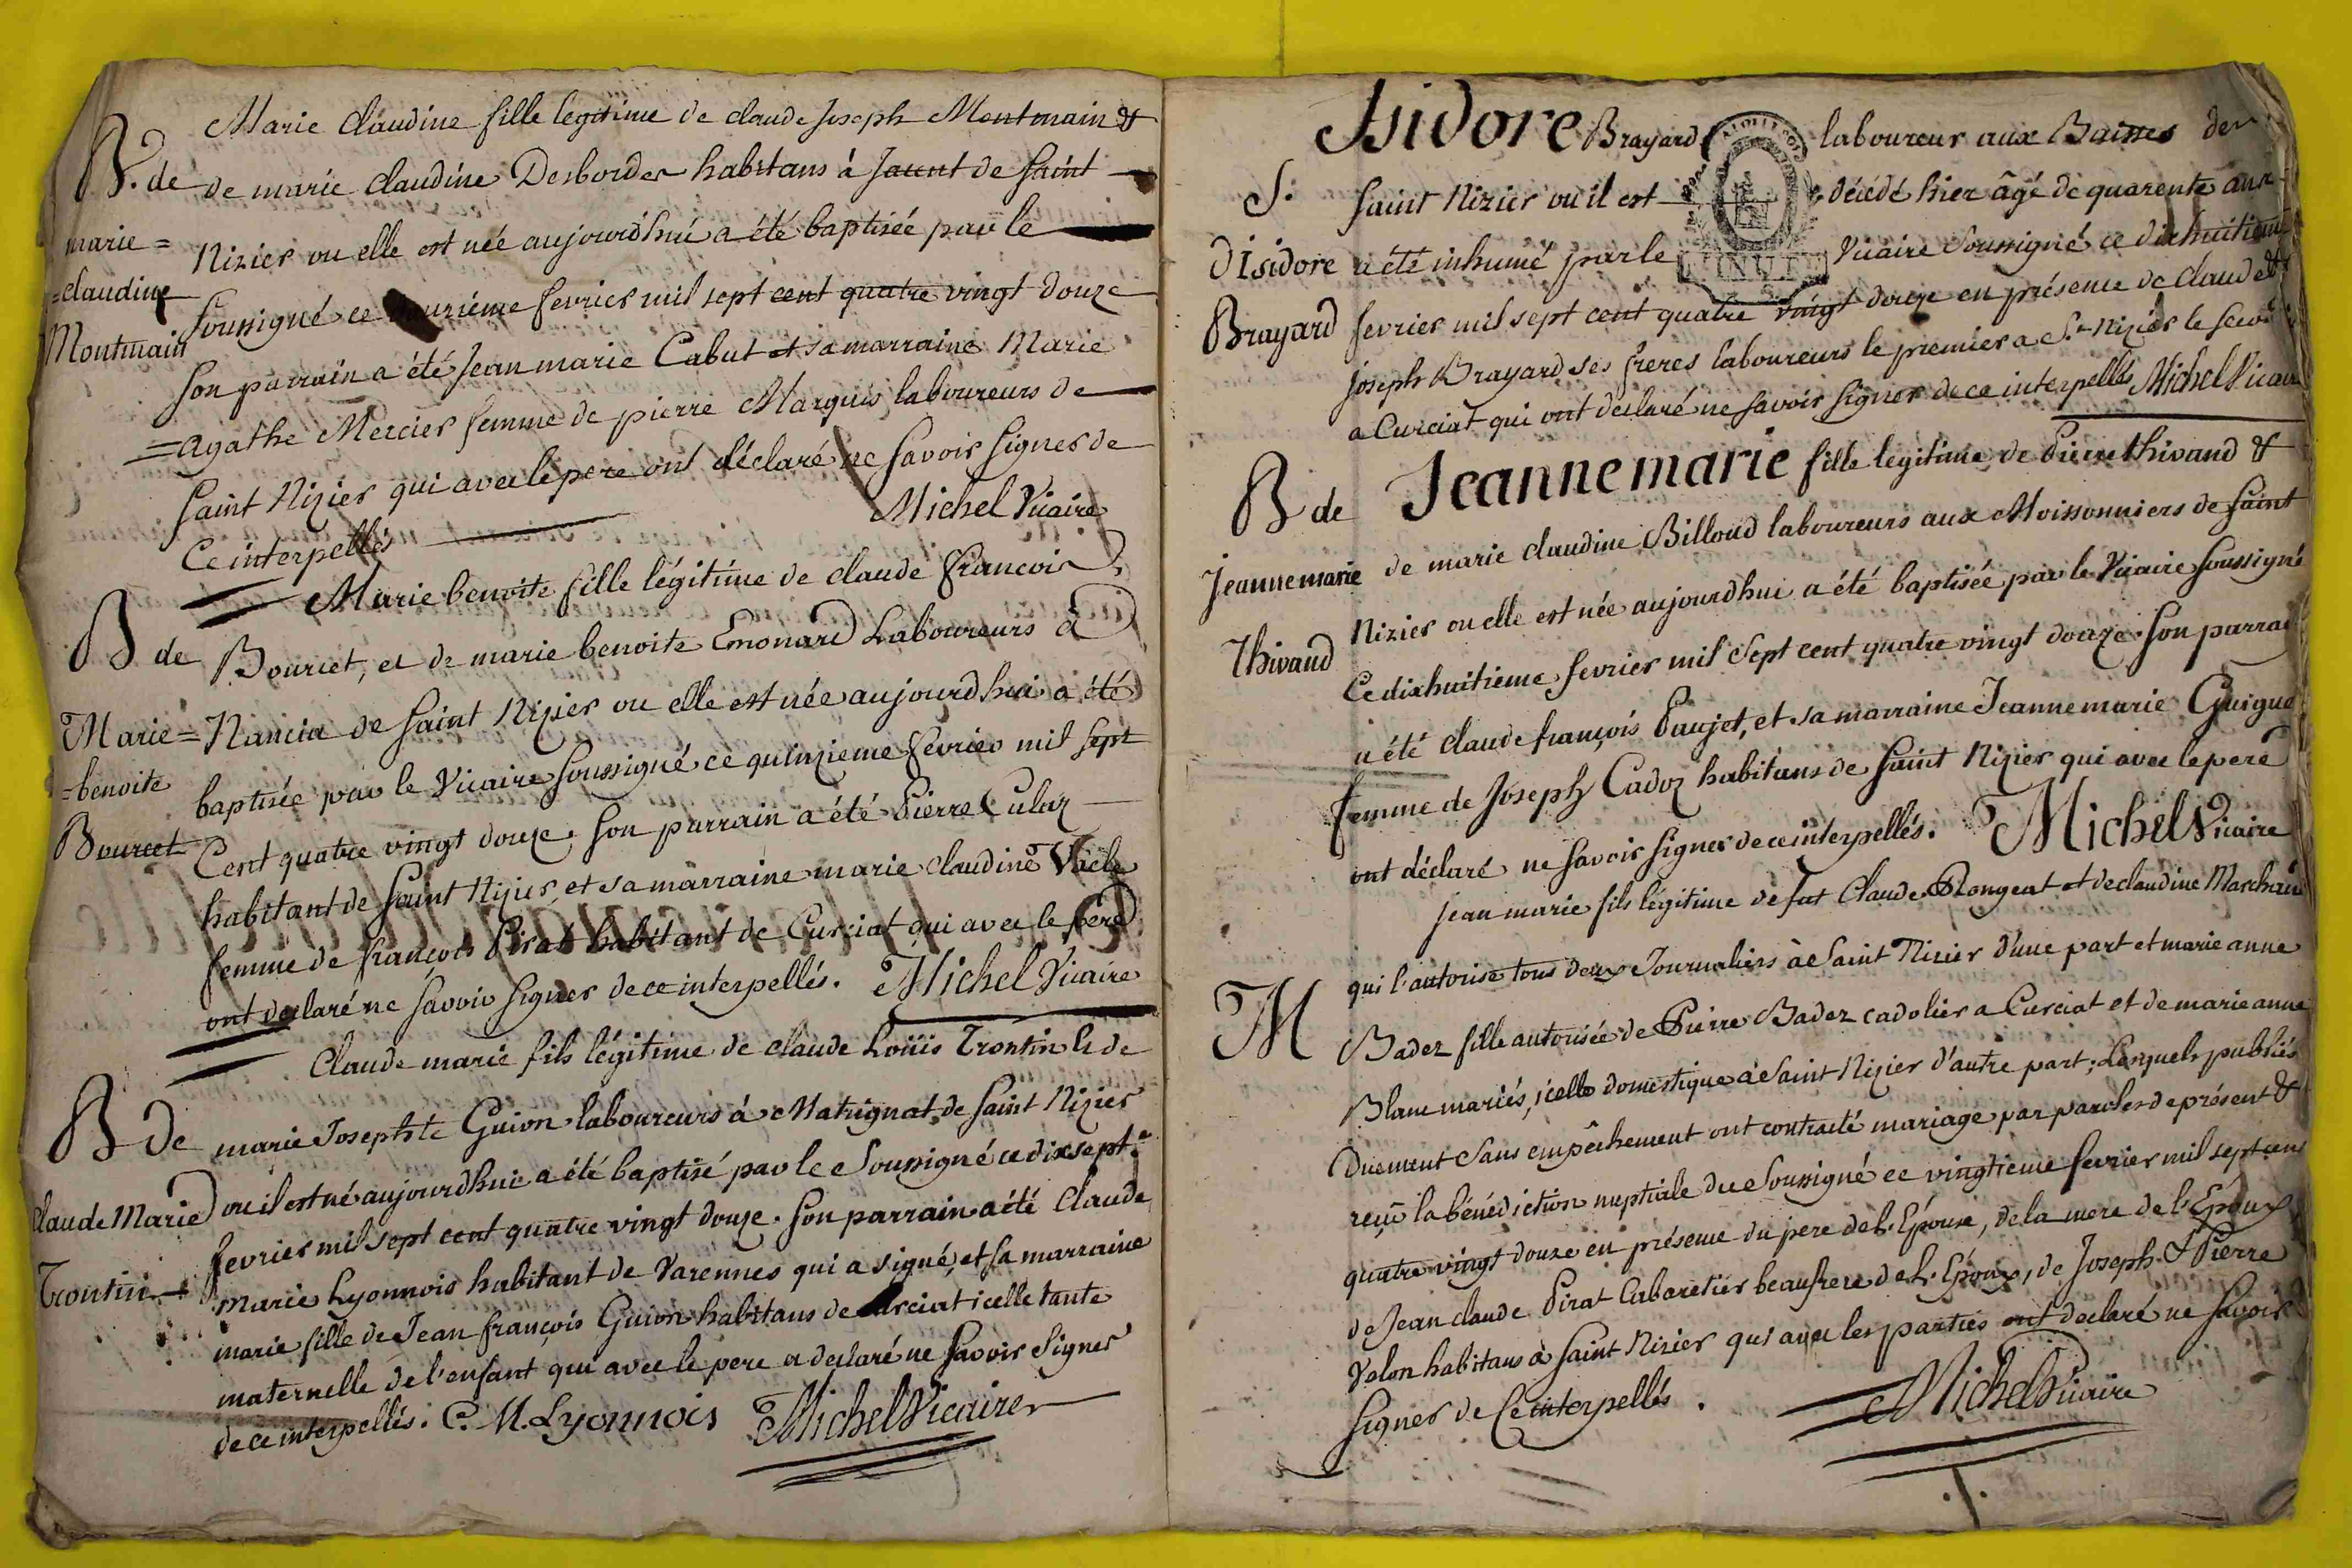 Marie Claudine fille legitime de claude Joseph Montmain &
B. de de marie claudine Desbordes habitans à Jaunt de Saint
marie = Nizier ou elle est née aujourd'hui a été baptisée par le
=claudine soussigné ce fevrier mil sept cent quatre vingt douze
Montmain son parrain a été Jean marie Cabut et sa marraine Marie
=agathe Mercier femme de pierre Marquis laboureurs de
Saint Nizier qui avec le pere ont déclaré ne savoir signer de
Ce interpellés Michel Vicaire
Marie benoite fille légitime de claude francois
B de Bourcet, et de marie benoite Emonard Laboureurs à
Marie= Nancia de Saint Nizier ou elle est née aujourd'hui a été
=benoite baptisée par le Vicaire soussigné ce quinzieme fevrier mil sept
Bourcet Cent quatre vingt douze. son parrain a été Pierre Culaz
habitant de Saint Nizier, et sa marraine marie claudine Vacle
femme de françois Pirat habitant de Curciat qui avec le pere
ont declaré ne savoir signer de ce interpellés. Michel Vicaire
Claude marie fils légitime de claude Loüis Trontin & de
B de marie Josephte Guion laboureurs à Matrignat de Saint Nizier
Claude Marie ou il est né aujourdhui a été baptisé par le Soussigné ce dix sept.e
Trontin fevrier mil sept cent quatre vingt douze. son parrain a été Claude
Marie Lyonnois habitant de Varennes qui a signé, et sa marraine
marie fille de Jean françois Guion habitans de Curciat icelle tante
maternelle de l'enfant qui avec le pere a declaré ne savoir signer
de ce interpellés. C. M. Lyonnois Michel Vicaire
Isidore Brayard laboureur aux Baisses de
S. Saint Nizier ou il est décédé hier âgé de quarente ans
d'Isidore a été inhumé par le Vicaire Soussigné ce dixhuitieme
Brayard fevrier mil sept cent quatre vingt douze en présence de claude &
joseph Brayard ses freres laboureurs le premier a St Nizier le second
a Curciat qui ont declaré ne savoir signer de ce interpellés Michel Vicaire
B de Jeanne marie fille legitime de Pierre thivand &
Jeanne marie de marie claudine Billoud laboureurs aux Moissonniers de Saint
Thivand Nizier ou elle est née aujourdhui a été baptisée par le Vicaire soussigné
Ce dixhuitieme fevrier mil Sept cent quatre vingt douze. Son parrain
a été claude françois Paujet, et sa marraine Jeanne marie Guigue
femme de Joseph Cadoz habitans de Saint Nizier qui avec le pere
ont déclaré ne savoir signer de ce interpellés. Michel Vicaire
jean marie fils légitime de fut Claude Rongeat et de claudine Marchand
qui l'autorise tous deux Journaliers à Saint Nizier d'une part et marie anne
M Badez fille autorisée de Pierre Badez cadolier a Curciat et de marie anne
Blanc mariés, icelle domestique à Saint Nizier d'autre part; Lesquels publiés
Duement Sans empêchement ont contracté mariage par paroles de présent &
reçu la bénédiction nuptiale du Soussigné ce vingtieme fevrier mil sept cent
quatre vingt douze en présence du pere de l'Epouse, de la mere de l'Epoux
de Jean claude Pirat Cabaretier beaufrere de L'Epoux, de Joseph & Pierre
Velon habitans à Saint Nizier qui avec les parties ont declaré ne savoir
Signer de Ce interpellés. Michel Vicaire